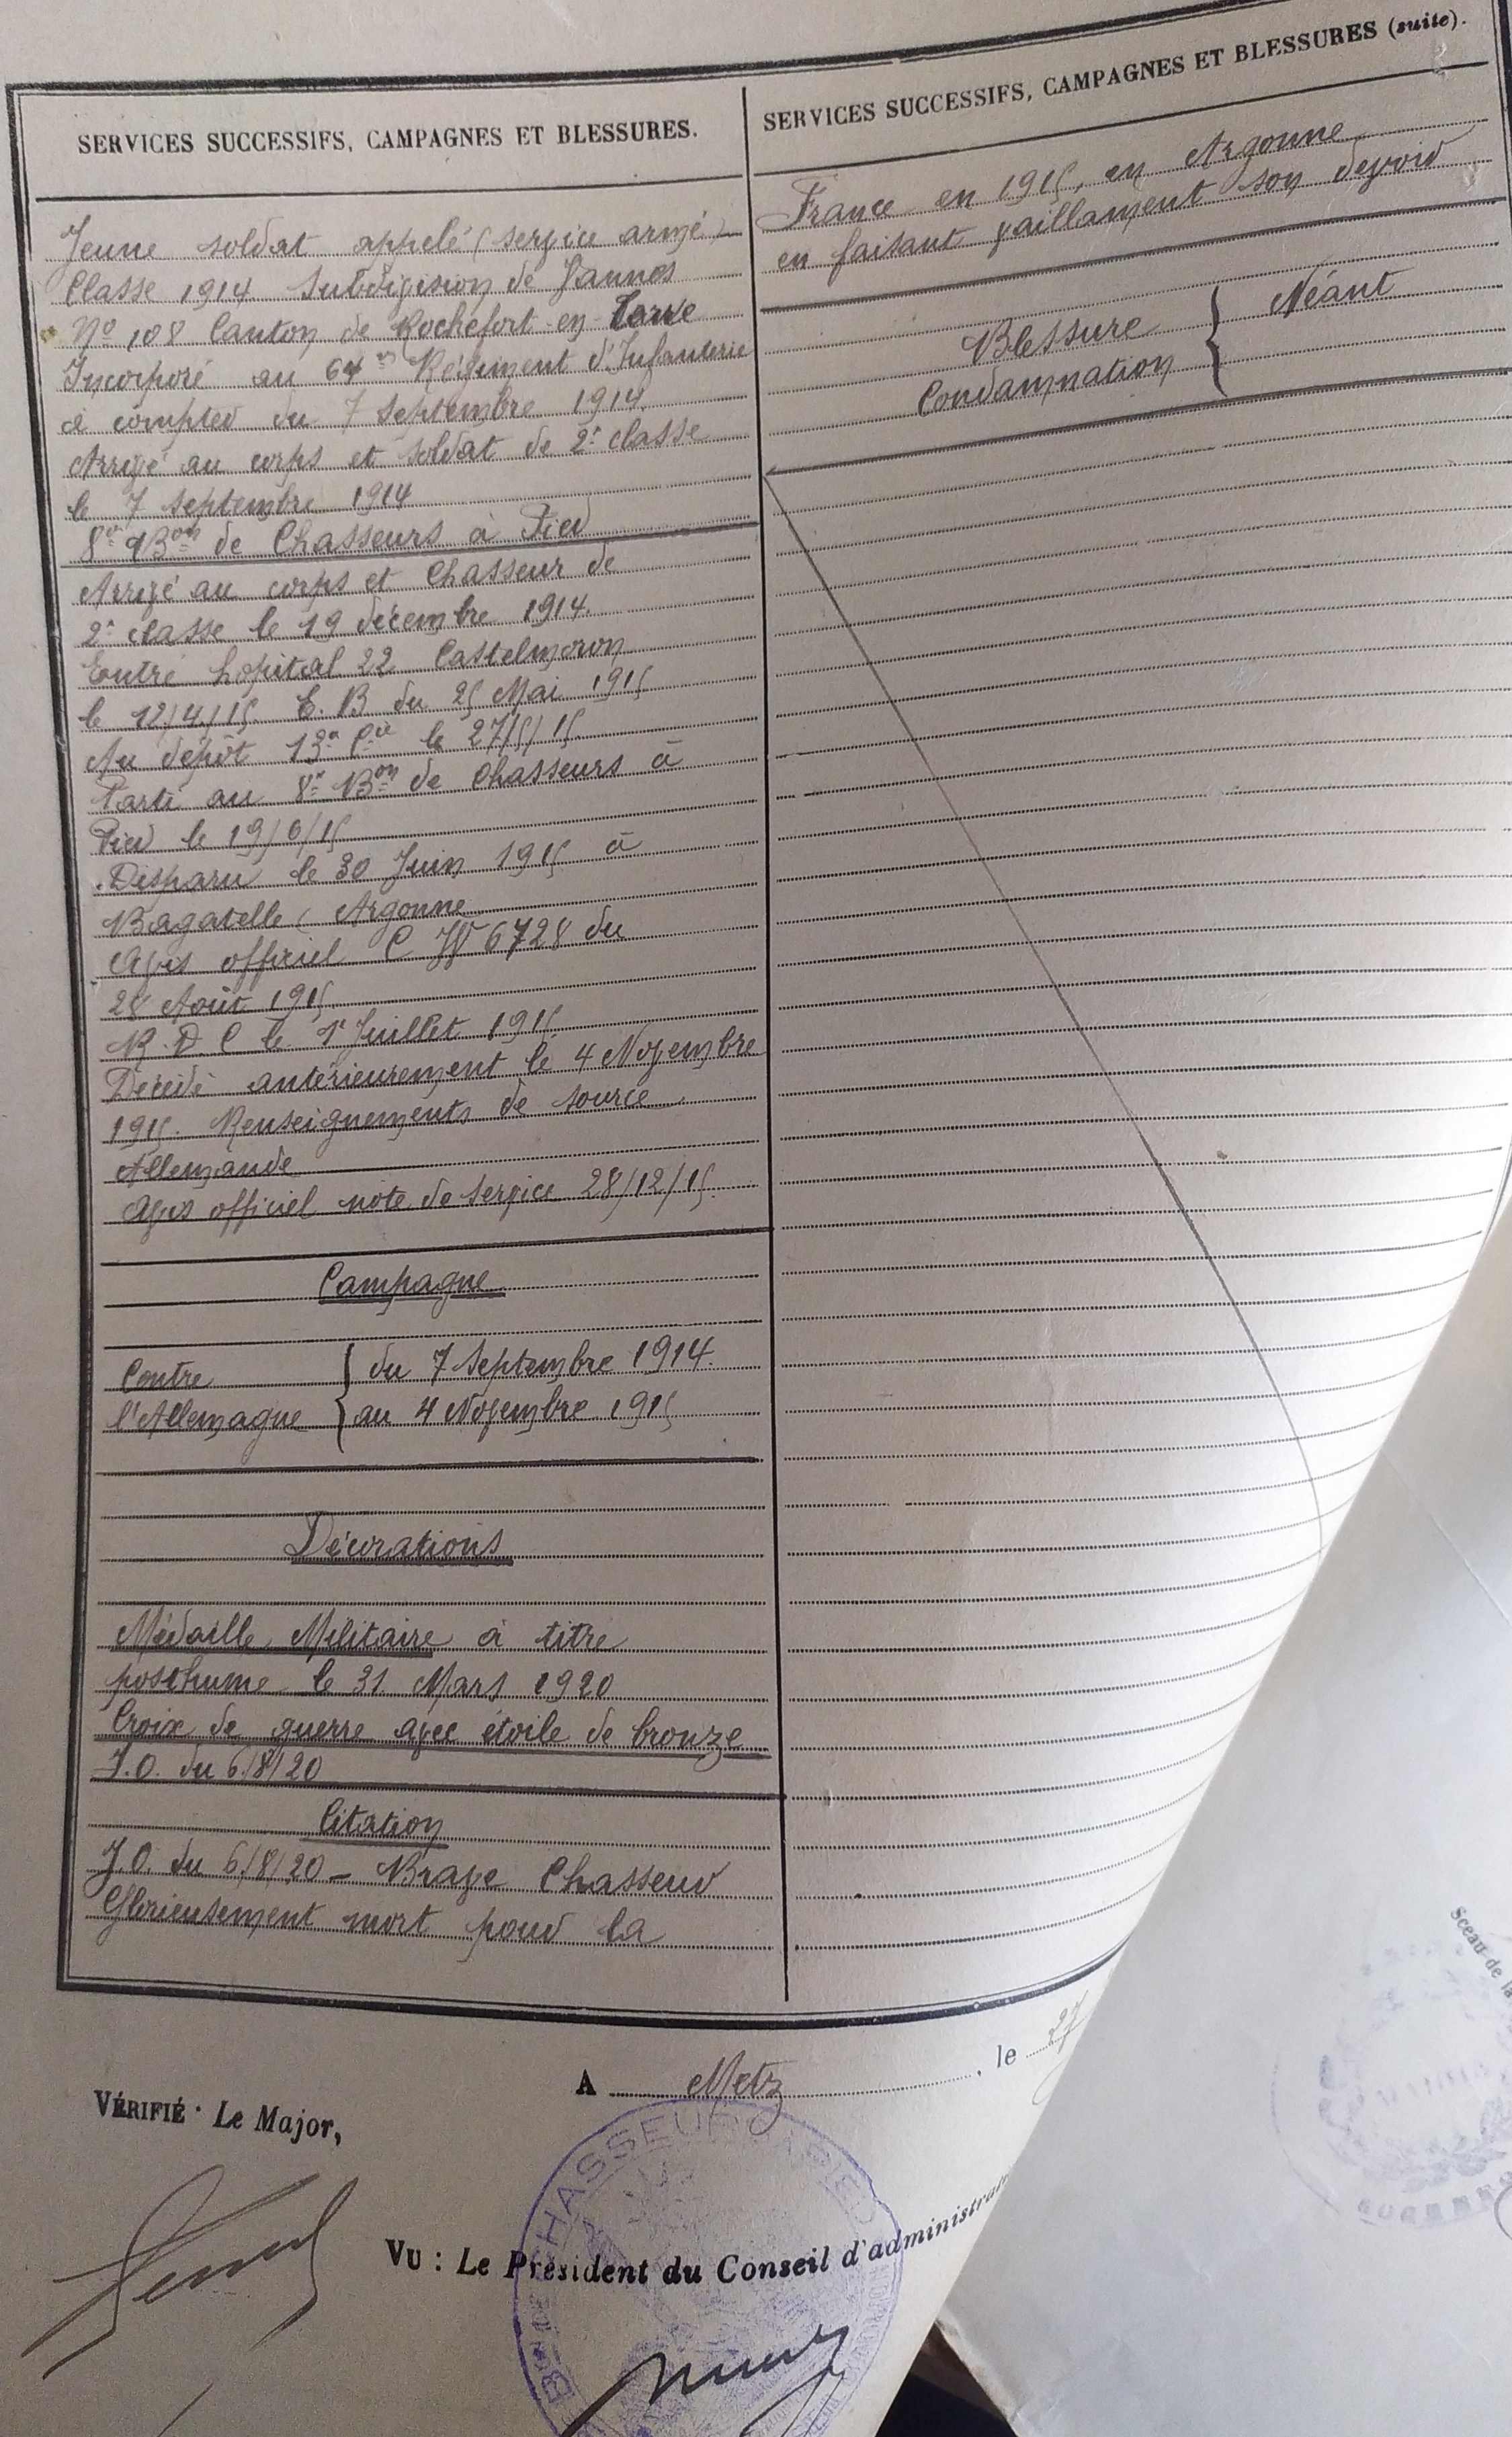 SERVICES SUCCESSIFS, CAMPAGNES ET BLESSURES.
Jeune soldat appelé (service armé)
Classe 1914 Subdivision de Vannes
No 108 Canton de Rochefort-en-Terre
Incorporé au 64me Régiment d'Infanterie
à compter du 7 Septembre 1914.
Arrivé au corps et soldat de 2e classe
le 7 Septembre 1914
8e Bon de Chasseurs à Pied
Arrivé au corps et Chasseur de
2e classe le 19 décembre 1914.
Entré hopital 22 Castelmoron
le 12/4/15. E. B du 25 Mai 1915
Au dépôt 13e Cie le 27/5/15.
Parti au 8e Bon de Chasseurs à
Pied le 19/6/15
Disparu le 30 Juin 1915 à
Bagatelle (Argonne
Avis officiel C 6728 du
28 Août 1915
R. D. C le 1er Juillet 1915
Décédé antérieurement le 4 Novembre
1915. Renseignements de source
Allemande
Avis officiel note de service 28/12/15.
Campagne
Contre
l'Allemagne
du 7 Septembre 1914.
au 4 Novembre 1915
Décorations
Médaille Militaire à titre
posthume le 31 Mars 1920
Croix de guerre avec étoile de bronze
J.O. du 6/8/20
Citation
J.O. du 6/8/20 - Brave Chasseur
Glorieusement mort pour la
SERVICES SUCCESSIFS, CAMPAGNES ET BLESSURES (suite).
France en 1915, en Argonne
en faisant vaillament son devoir
Blessure
Condamnation
Néant
A Metz, le 27
VÉRIFIÉ : Le Major,
VU : Le Président du Conseil d'administrat
CHASSEURS A PIED
Sceau de la